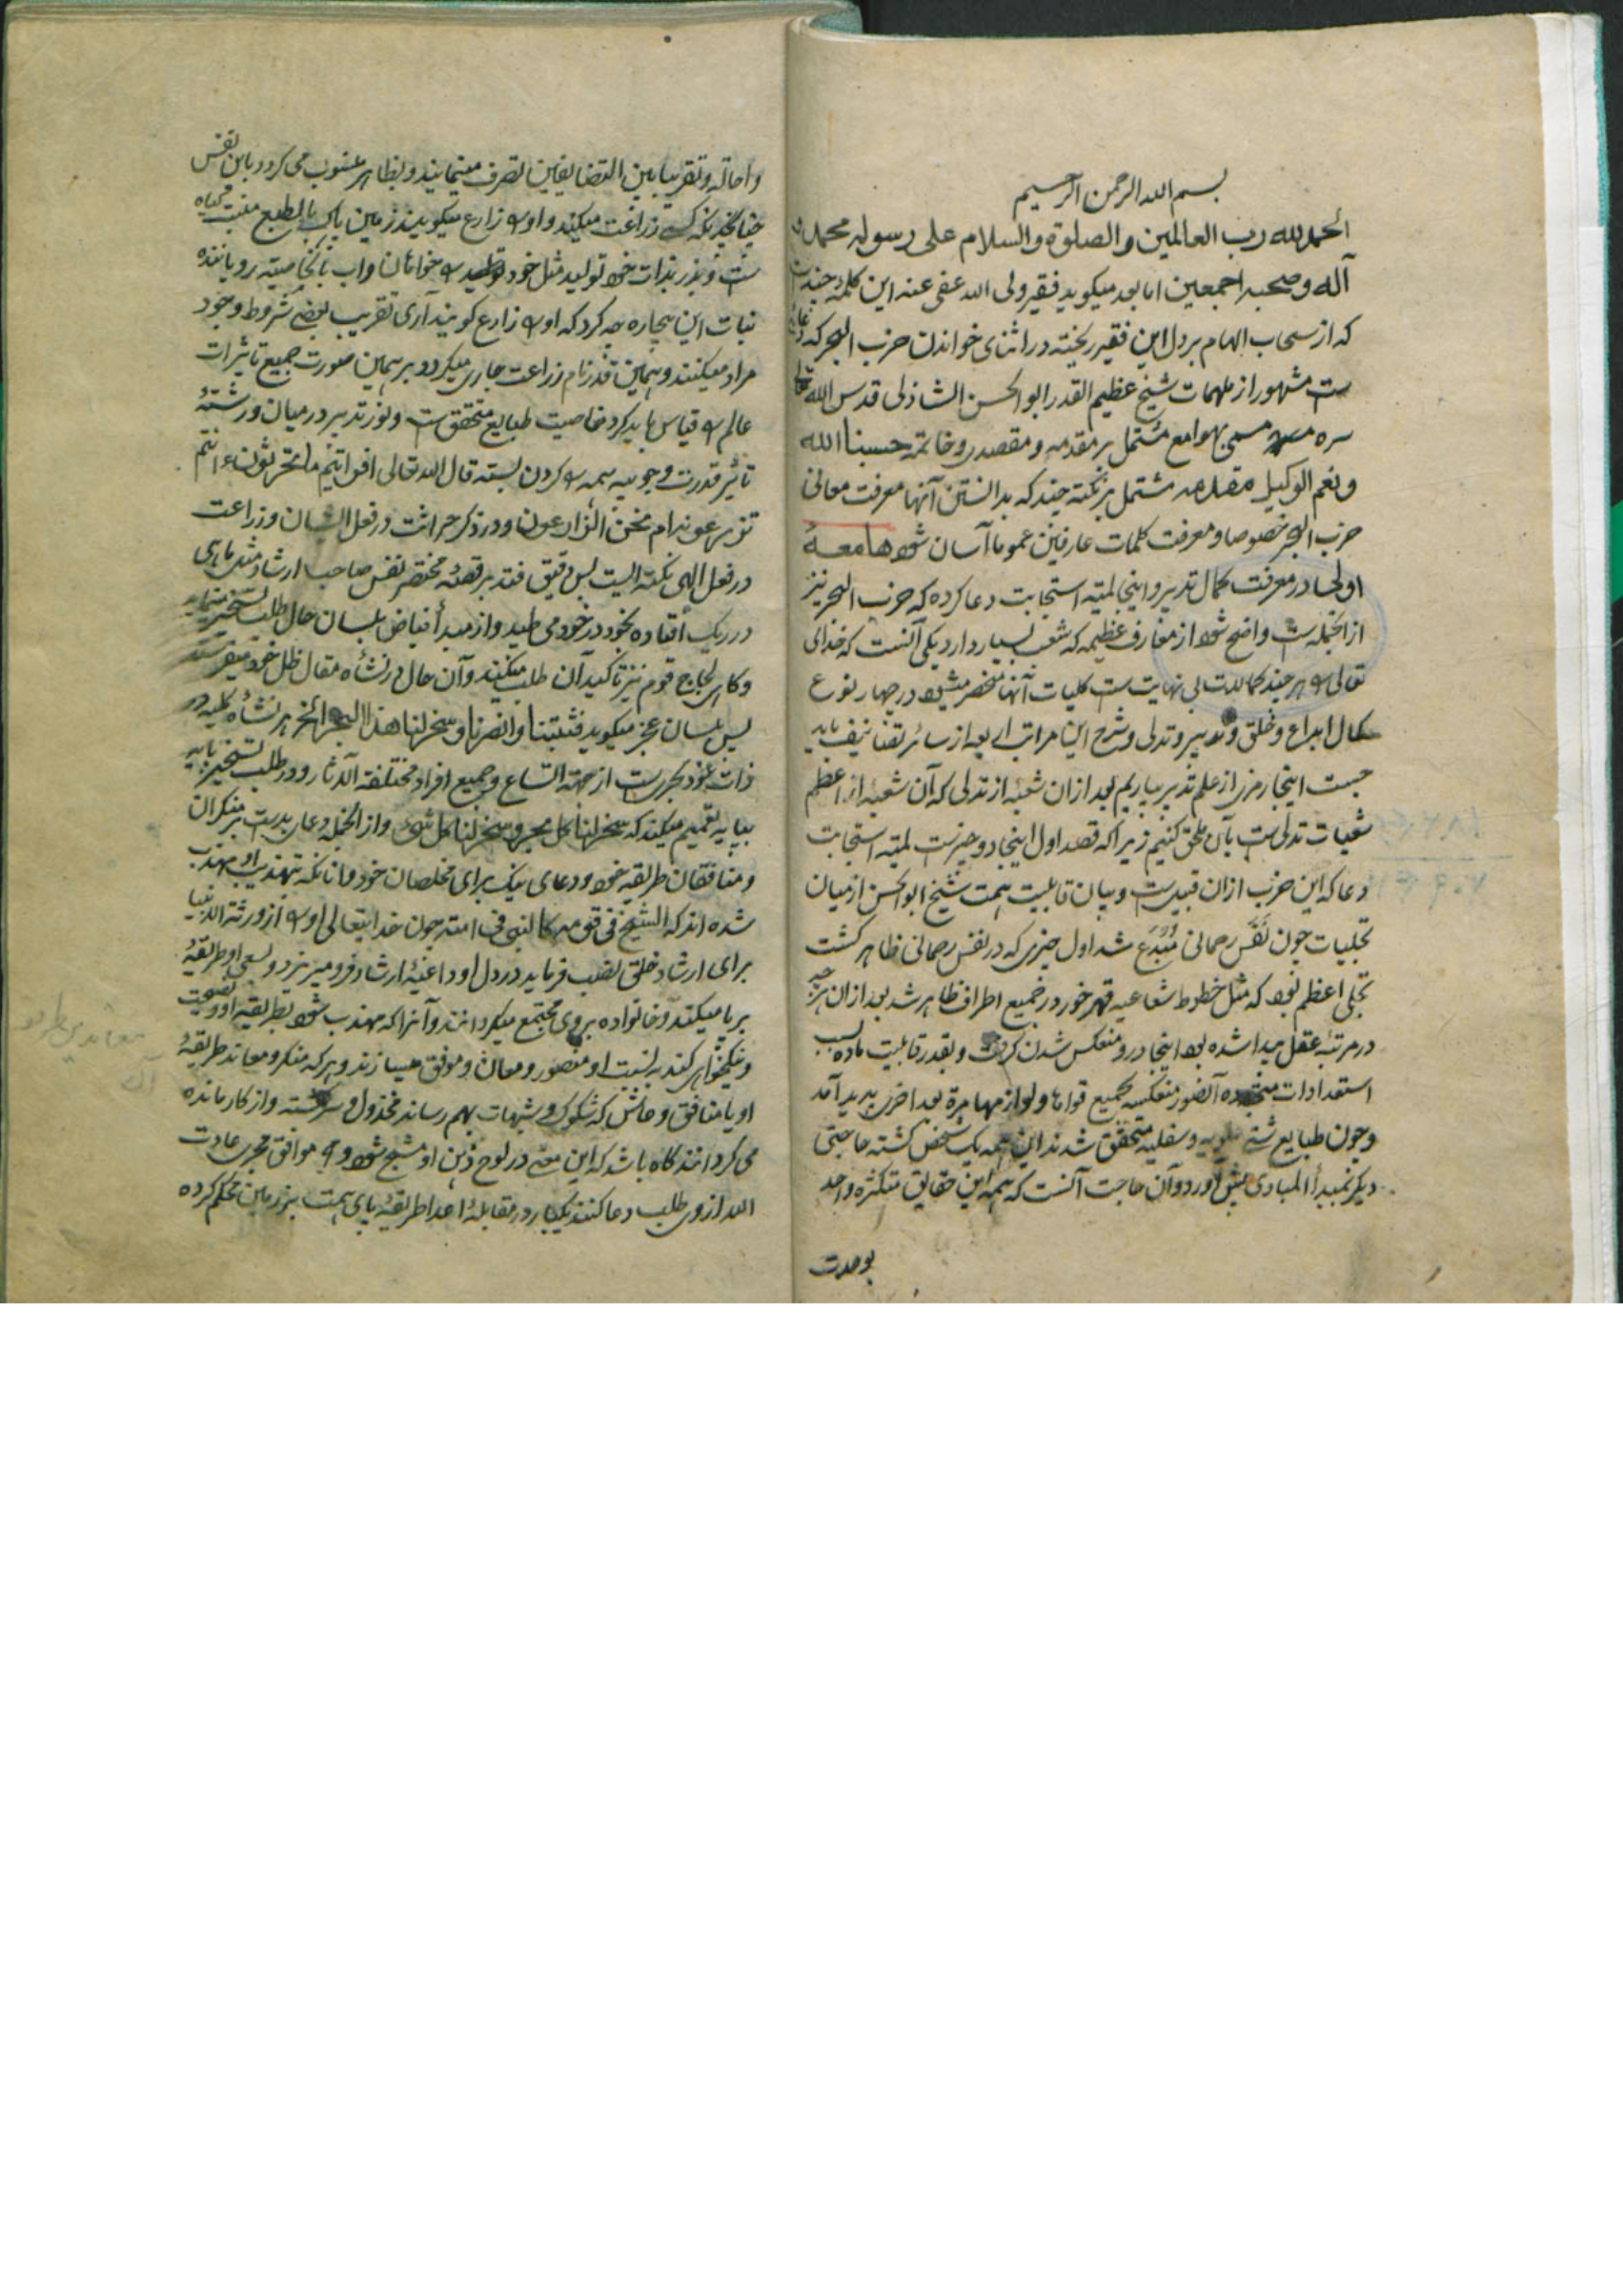 بسم الله الرحمن الرحیم
الحمد لله رب العالمین والصلوة والسلام علی رسوله محمد و
آله وصحبه اجمعین اما بعد میکوید فقیر ولی الله عفی عنه این کلمهٔ چند ست
که از سحاب الهام بر دل این فقیر ریخته در اثنای خواندن حزب البحر که دعای
ست مشهور از ملهمات شیخ عظیم القدر ابو الحسن الشاذلی قدس الله تعالی
سره مسمی بهوامع مشتمل بر مقدمه و مقصدی و خاتمه حسبنا الله
ونعم الوکیل مقدمه مشتمل بر نکتهٔ چند که بدانستن آنها معرفت معانی
حزب البحر خصوصا و معرفت کلمات عارفین عموما آسان شود هامعهٔ
اولی در معرفت کمال تدبیر و اینجا لمیّه استجابت دعا کرده که حزب البحر نیز
از آنجمله ست واضح شود از معارف عظیمه که شعب بسیار دارد یکی آنست که خدای
تعالی را هر چند کمالات بی نهایت ست کلیات آنها منحصر میشود در چهار نوع
کمال ابداع و خلق و تدبیر و تدلی و شرح این مراتب اربعه از سائر تصانیف باید
جست اینجا رمزی از علم تدبیر بیاریم بعد ازان شعبهٔ از تدلی که آن شعبه از اعظم
شعبات تدلی ست بآن ملحق کنیم زیرا که قصد اول اینجا دو چیزست لمیّه استجابت
دعا که این حزب ازان قبیل ست و بیان قابلیت همت شیخ ابو الحسن از میان
تجلیات چون نَفَس رحمانی مُبْدَع شد اول چیزی که در نفس رحمانی ظاهر کشت
تجلی اعظم بود که مثل خطوط شعاعیه قهر خود در جمیع اطراف ظاهر شد بعد ازان هر چه
در مرتبهٔ عقل پیدا شده بود اینجا رو بمنعکس شدن کرفت و بقدر قابلیت ماده بسبب
استعدادات آن صور منعکسه بجمیع قواها ولوازمها مرة بعد اخری پدید آمد
وچون طبایع شتی علویه و سفلیه متحقق شدند این همه یک شخص کشته حاجتی
دیکر بمبدأ المبادی پیش آورد و آن حاجت آنست که همه این حقایق متکثره واحد
بوحدت
واحاله و تقریبا بین المتضایفین تصرف مینمایند و بظاهر منسوب می کردد باین نفس
چنانچه کسی زراعت میکند و او را زارع میکویند زمین پاک بالطبع منبت کیاه
ست و بذر بذات خود تولید مثل خود را خواهان و آب بالخاصیته رویاننده
نبات این بیچاره چه کرد که او را زارع کویند آری تقریب بعضی شروط وجود
مراد میکنند و بهمین قدر نام زراعت جاری میکردد و بر همین صورت جمیع تاثیرات
عالم را قیاس باید کرد خاصیت طبایع متحقق ست و نور تدبیر در میان و رشتهٔ
تاثیر قدرت وجوبیه همه را کردن بسته قال الله تعالی افرایتم ما تحرثون ءانتم
تزرعونه ام نحن الزارعون و در ذکر حراثت در فعل انسان وزراعت
در فعل الهی نکته ایست بس دقیق فتدبر قصه مختصر نفس صاحب ارشاد مثل ماهی
در ریک افتاده بخود در خود می طپد و از مبدأ فیاض بلسان حال طلب تسخیر مینماید
و کاهی لجاج قوم نیز تاکید آن طلب میکند و آن حال در نشأه مقال ظل خود میفرستد
پس بلسان عجز میکوید فثبتنا وانصرنا وسخر لنا هذا البحر الخ هر نشأه کلیه در
ذات خود بحری ست از جهة اتساع و جمیع افراد مختلفة الآثار و در طلب تسخیر پایه
بپایه تعمیم میکند که سخر لنا کل بحر وسخر لنا کل شیء و از آنجمله دعای بد ست بر منکران
و منافقان طریقه خود و دعای نیک برای مخلصان خود و آنانکه بتهذیب او مهذب
شده اند که الشیخ فی قومه کالنبی فی امته چون خدا تعالی او را از ورثة الانبیا
برای ارشاد خلق نصب فرماید در دل او داعیهٔ ارشاد فرو میریزد و بسعی او طریقهٔ
برپا میکند و خانواده بروی مجتمع میکردانند و آنرا که مهذب شود بطریقه او و نصیحت
و نیکخواهی کند به نسبت او منصور و معان و موفق میسازند و هر که منکر و معاند طریقهٔ
او یا منافق و خاین که شکوک و شبهات بهم رساند مخذول و سرکشته و از کار مانده
می کردانند کاه باشد که این معنی در لوح ذهن او مشبح شود و موافق مجری عادت
الله از وی طلب دعا کنند یکبار در مقابلهٔ اعدا طریقهٔ پای همت بر زمین محکم کرده